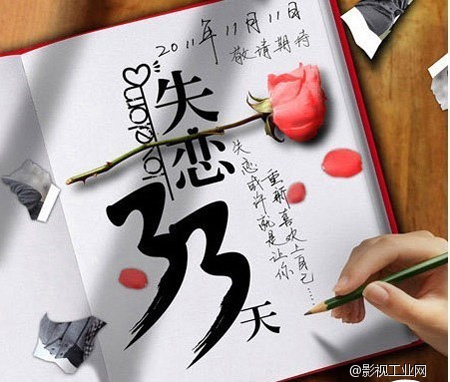 2011年11月11日
敬请期待
失恋
33
天
失恋或许就是让你
重新喜欢上自己……
@影视工业网